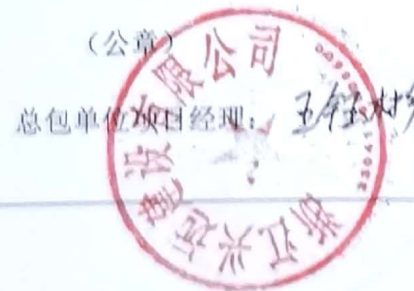 （公章）
总包单位项目经理：王钰
浙江兴远建设有限公司